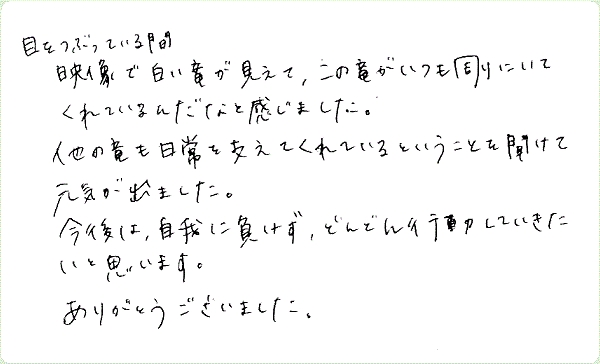 目をつぶっている間
映像で白い竜が見えて、この竜がいつも周りにいて
くれているんだなと感じました。
他の竜も日常を支えてくれているということを聞けて
元気が出ました。
今後は、自我に負けず、どんどん行動していきた
いと思います。
ありがとうございました。